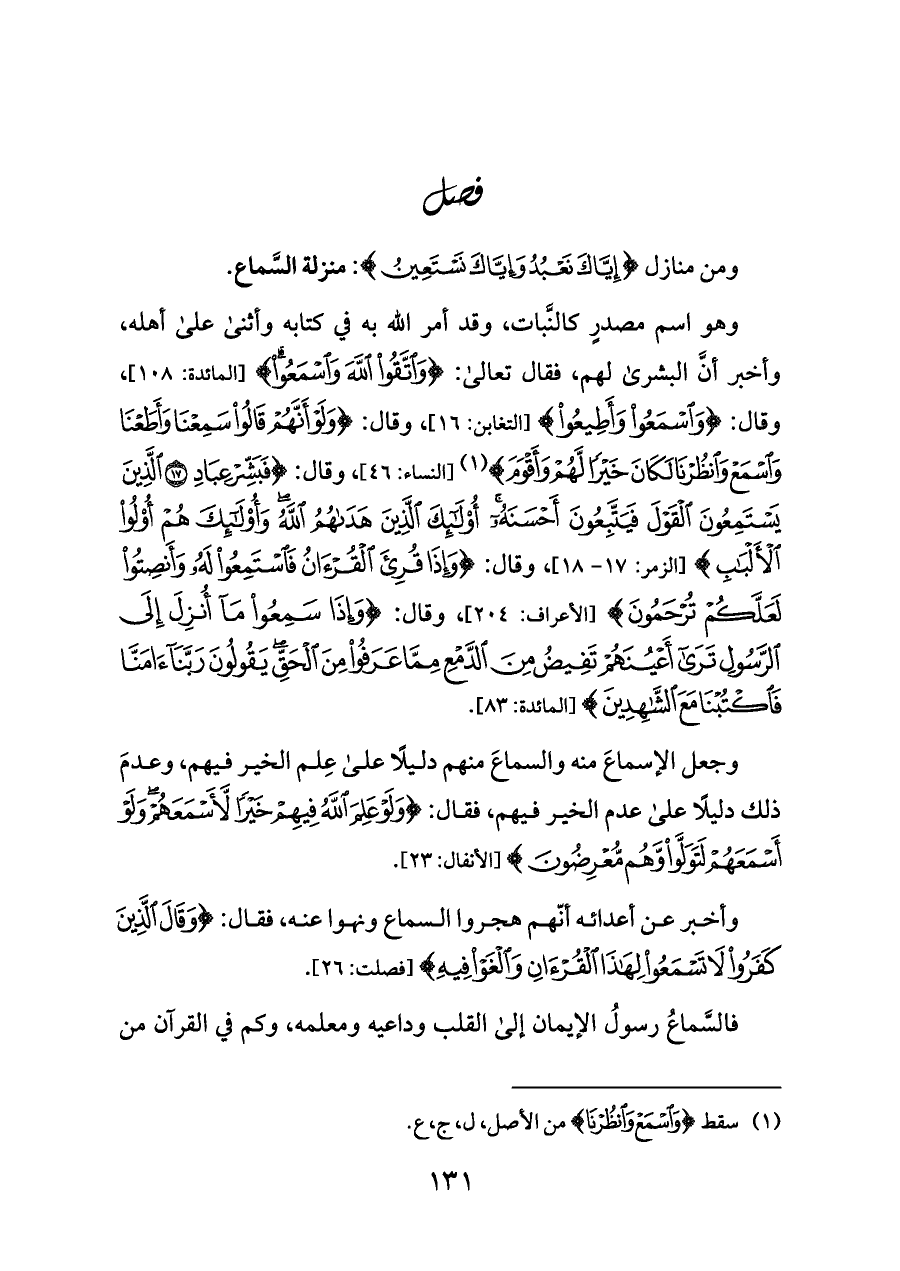 فصل
ومن منازل ﴿إِيَّاكَ نَعْبُدُ وَإِيَّاكَ نَسْتَعِينُ﴾: منزلة السَّماع.
وهو اسم مصدرٍ كالنَّبات، وقد أمر الله به في كتابه وأثنىٰ علىٰ أهله،
وأخبر أنَّ البشرىٰ لهم، فقال تعالىٰ: ﴿وَٱتَّقُوا۟ ٱللَّهَ وَٱسْمَعُوا۟ۗ﴾ [المائدة: ١٠٨]،
وقال: ﴿وَٱسْمَعُوا۟ وَأَطِيعُوا۟﴾ [التغابن: ١٦]، وقال: ﴿وَلَوْ أَنَّهُمْ قَالُوا۟ سَمِعْنَا وَأَطَعْنَا
وَٱسْمَعْ وَٱنظُرْنَا لَكَانَ خَيْرًا لَّهُمْ وَأَقْوَمَ﴾(١) [النساء: ٤٦]، وقال: ﴿فَبَشِّرْ عِبَادِ ١٧ ٱلَّذِينَ
يَسْتَمِعُونَ ٱلْقَوْلَ فَيَتَّبِعُونَ أَحْسَنَهُۥٓۚ أُو۟لَٰٓئِكَ ٱلَّذِينَ هَدَىٰهُمُ ٱللَّهُۖ وَأُو۟لَٰٓئِكَ هُمْ أُو۟لُوا۟
ٱلْأَلْبَٰبِ﴾ [الزمر: ١٧- ١٨]، وقال: ﴿وَإِذَا قُرِئَ ٱلْقُرْءَانُ فَٱسْتَمِعُوا۟ لَهُۥ وَأَنصِتُوا۟
لَعَلَّكُمْ تُرْحَمُونَ﴾ [الأعراف: ٢٠٤]، وقال: ﴿وَإِذَا سَمِعُوا۟ مَآ أُنزِلَ إِلَى
ٱلرَّسُولِ تَرَىٰٓ أَعْيُنَهُمْ تَفِيضُ مِنَ ٱلدَّمْعِ مِمَّا عَرَفُوا۟ مِنَ ٱلْحَقِّۖ يَقُولُونَ رَبَّنَآ ءَامَنَّا
فَٱكْتُبْنَا مَعَ ٱلشَّٰهِدِينَ﴾ [المائدة: ٨٣].
وجعل الإسماعَ منه والسماعَ منهم دليلًا علىٰ عِلم الخير فيهم، وعدمَ
ذلك دليلًا علىٰ عدم الخير فيهم، فقال: ﴿وَلَوْ عَلِمَ ٱللَّهُ فِيهِمْ خَيْرًا لَّأَسْمَعَهُمْۖ وَلَوْ
أَسْمَعَهُمْ لَتَوَلَّوا۟ وَّهُم مُّعْرِضُونَ﴾ [الأنفال: ٢٣].
وأخبر عن أعدائه أنّهم هجروا السماع ونهوا عنه، فقال: ﴿وَقَالَ ٱلَّذِينَ
كَفَرُوا۟ لَا تَسْمَعُوا۟ لِهَٰذَا ٱلْقُرْءَانِ وَٱلْغَوْا۟ فِيهِ﴾ [فصلت: ٢٦].
فالسَّماعُ رسولُ الإيمان إلىٰ القلب وداعيه ومعلمه، وكم في القرآن من
(١) سقط ﴿وَٱسْمَعْ وَٱنظُرْنَا﴾ من الأصل، ل، ج، ع.
١٣١